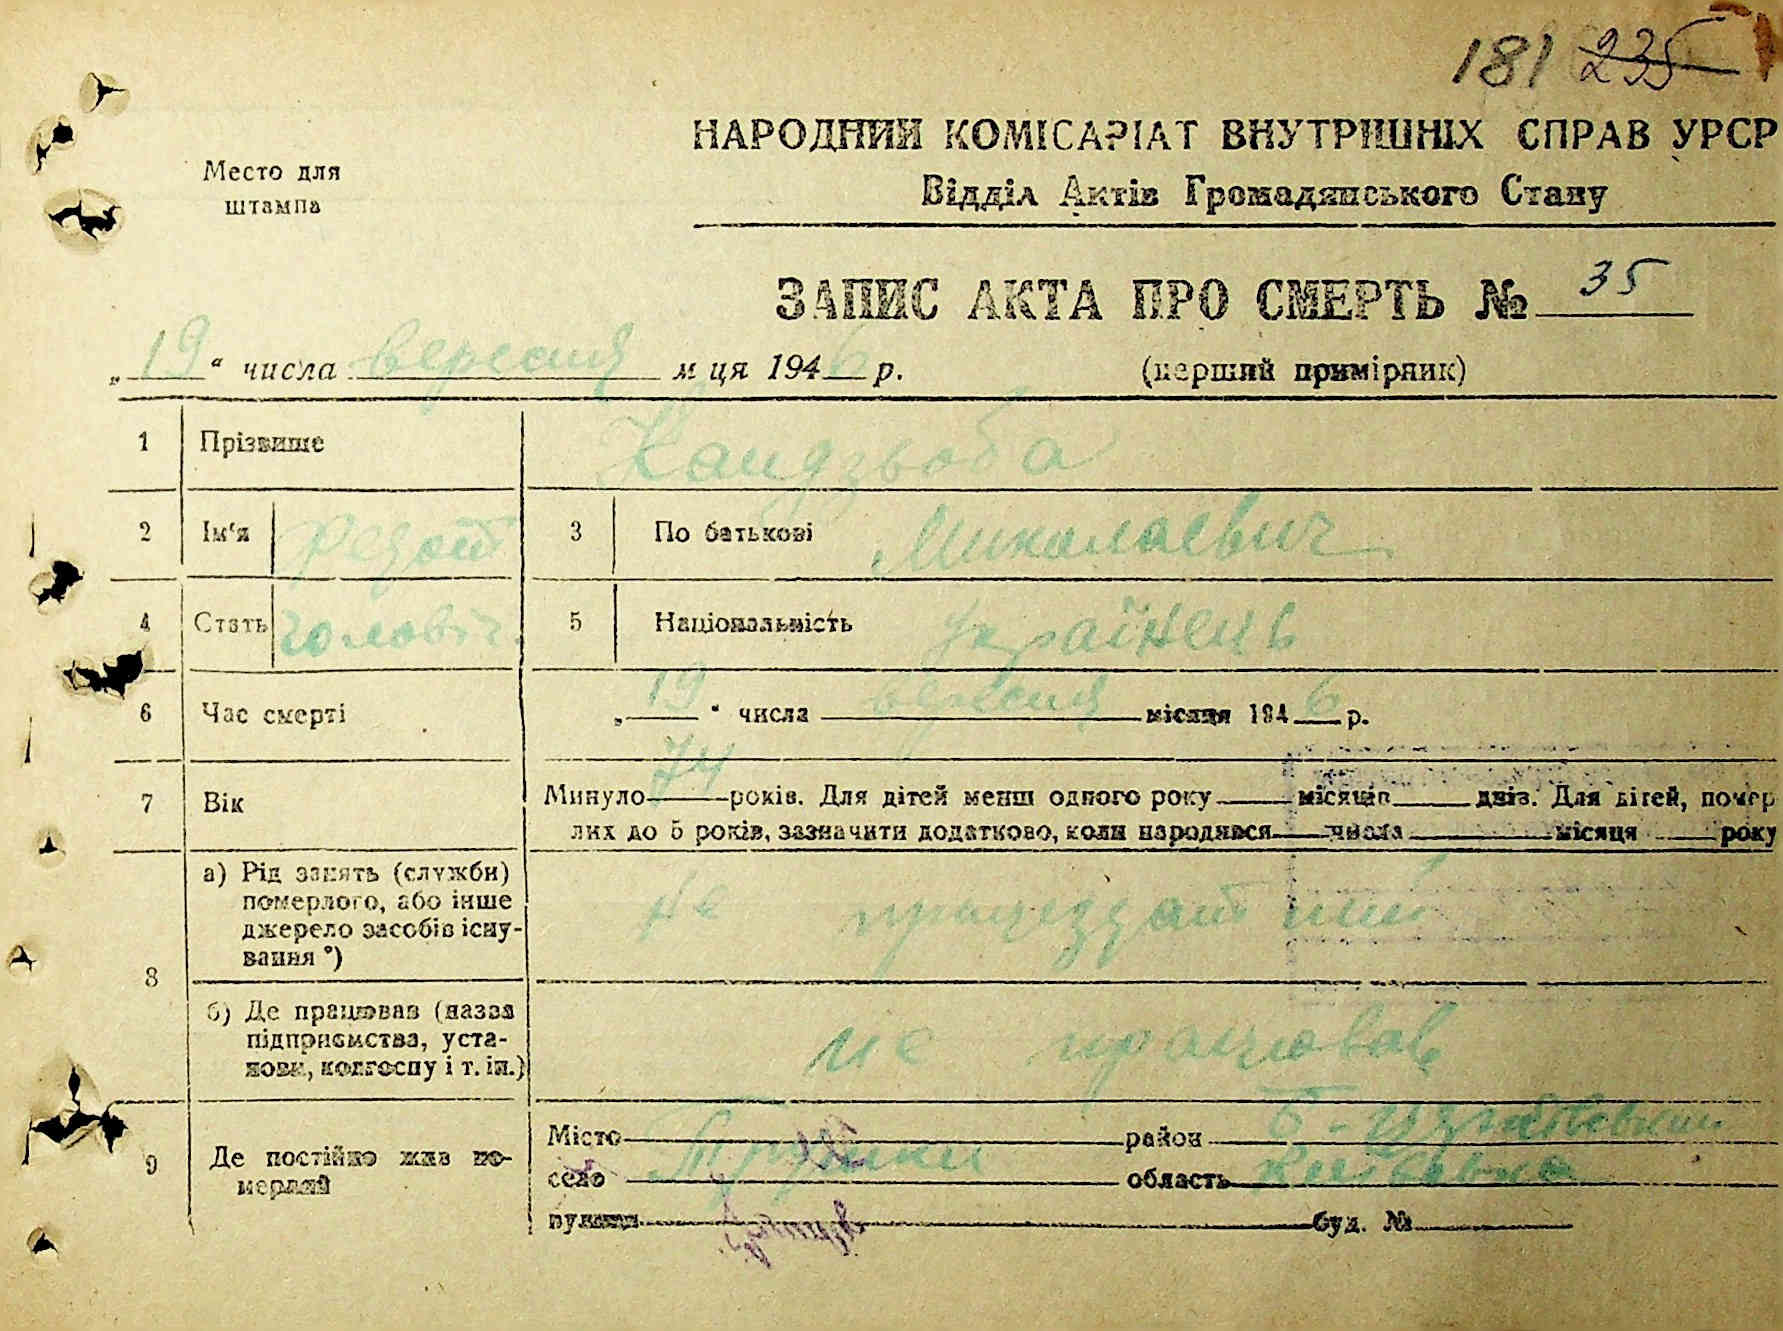 181 235
НАРОДНИЙ КОМІСАРІАТ ВНУТРІШНІХ СПРАВ УРСР
Відділ Актів Громадянського Стану
Место для
штампа
ЗАПИС АКТА ПРО СМЕРТЬ № 35
„19“ числа вересня м ця 1946 р. (перший примірник)
1 Прізвище Кандзьоба
2 Ім'я Федот 3 По батькові Миколаєвич
4 Стать чоловіч. 5 Національність українець
6 Час смерті „19“ числа вересня місяця 1946 р.
7 Вік Минуло 74 років. Для дітей менш одного року місяців днів. Для дітей, помер
лих до 5 років, зазначити додатково, коли народився числа місяця року
8 а) Рід занять (служби)
померлого, або інше
джерело засобів існу-
вання *) не працездатний
б) Де працював (назва
підприємства, уста-
нови, колгоспу і т. ін.) не працював
9 Де постійно жив по-
мерлий
Місто район
село область Київська
вулиця буд. №